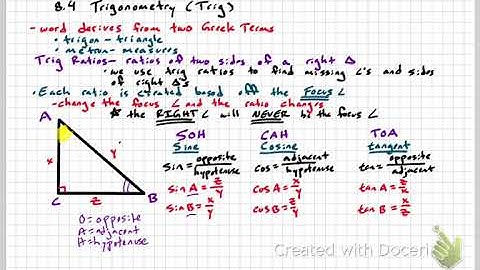 8.4 Trigonometry (Trig)
- word derives from two Greek Terms
• trigon - triangle
• metron - measures
Trig Ratios - ratios of two sides of a right △
• we use trig ratios to find missing ∠'s and sides of right △'s
• Each ratio is created based off the Focus ∠
- change the focus ∠ and the ratio changes
* the RIGHT ∠ will NEVER be the focus ∠
A
x
y
C
z
B
O = opposite
A = adjacent
H = hypotenuse
SOH
Sine
sin = opposite/hypotenuse
sin A = z/y
sin B = x/y
CAH
Cosine
cos = adjacent/hypotenuse
cos A = x/y
cos B = z/y
TOA
tangent
tan = opposite/adjacent
tan A = z/x
tan B = x/z
Created with Doceri